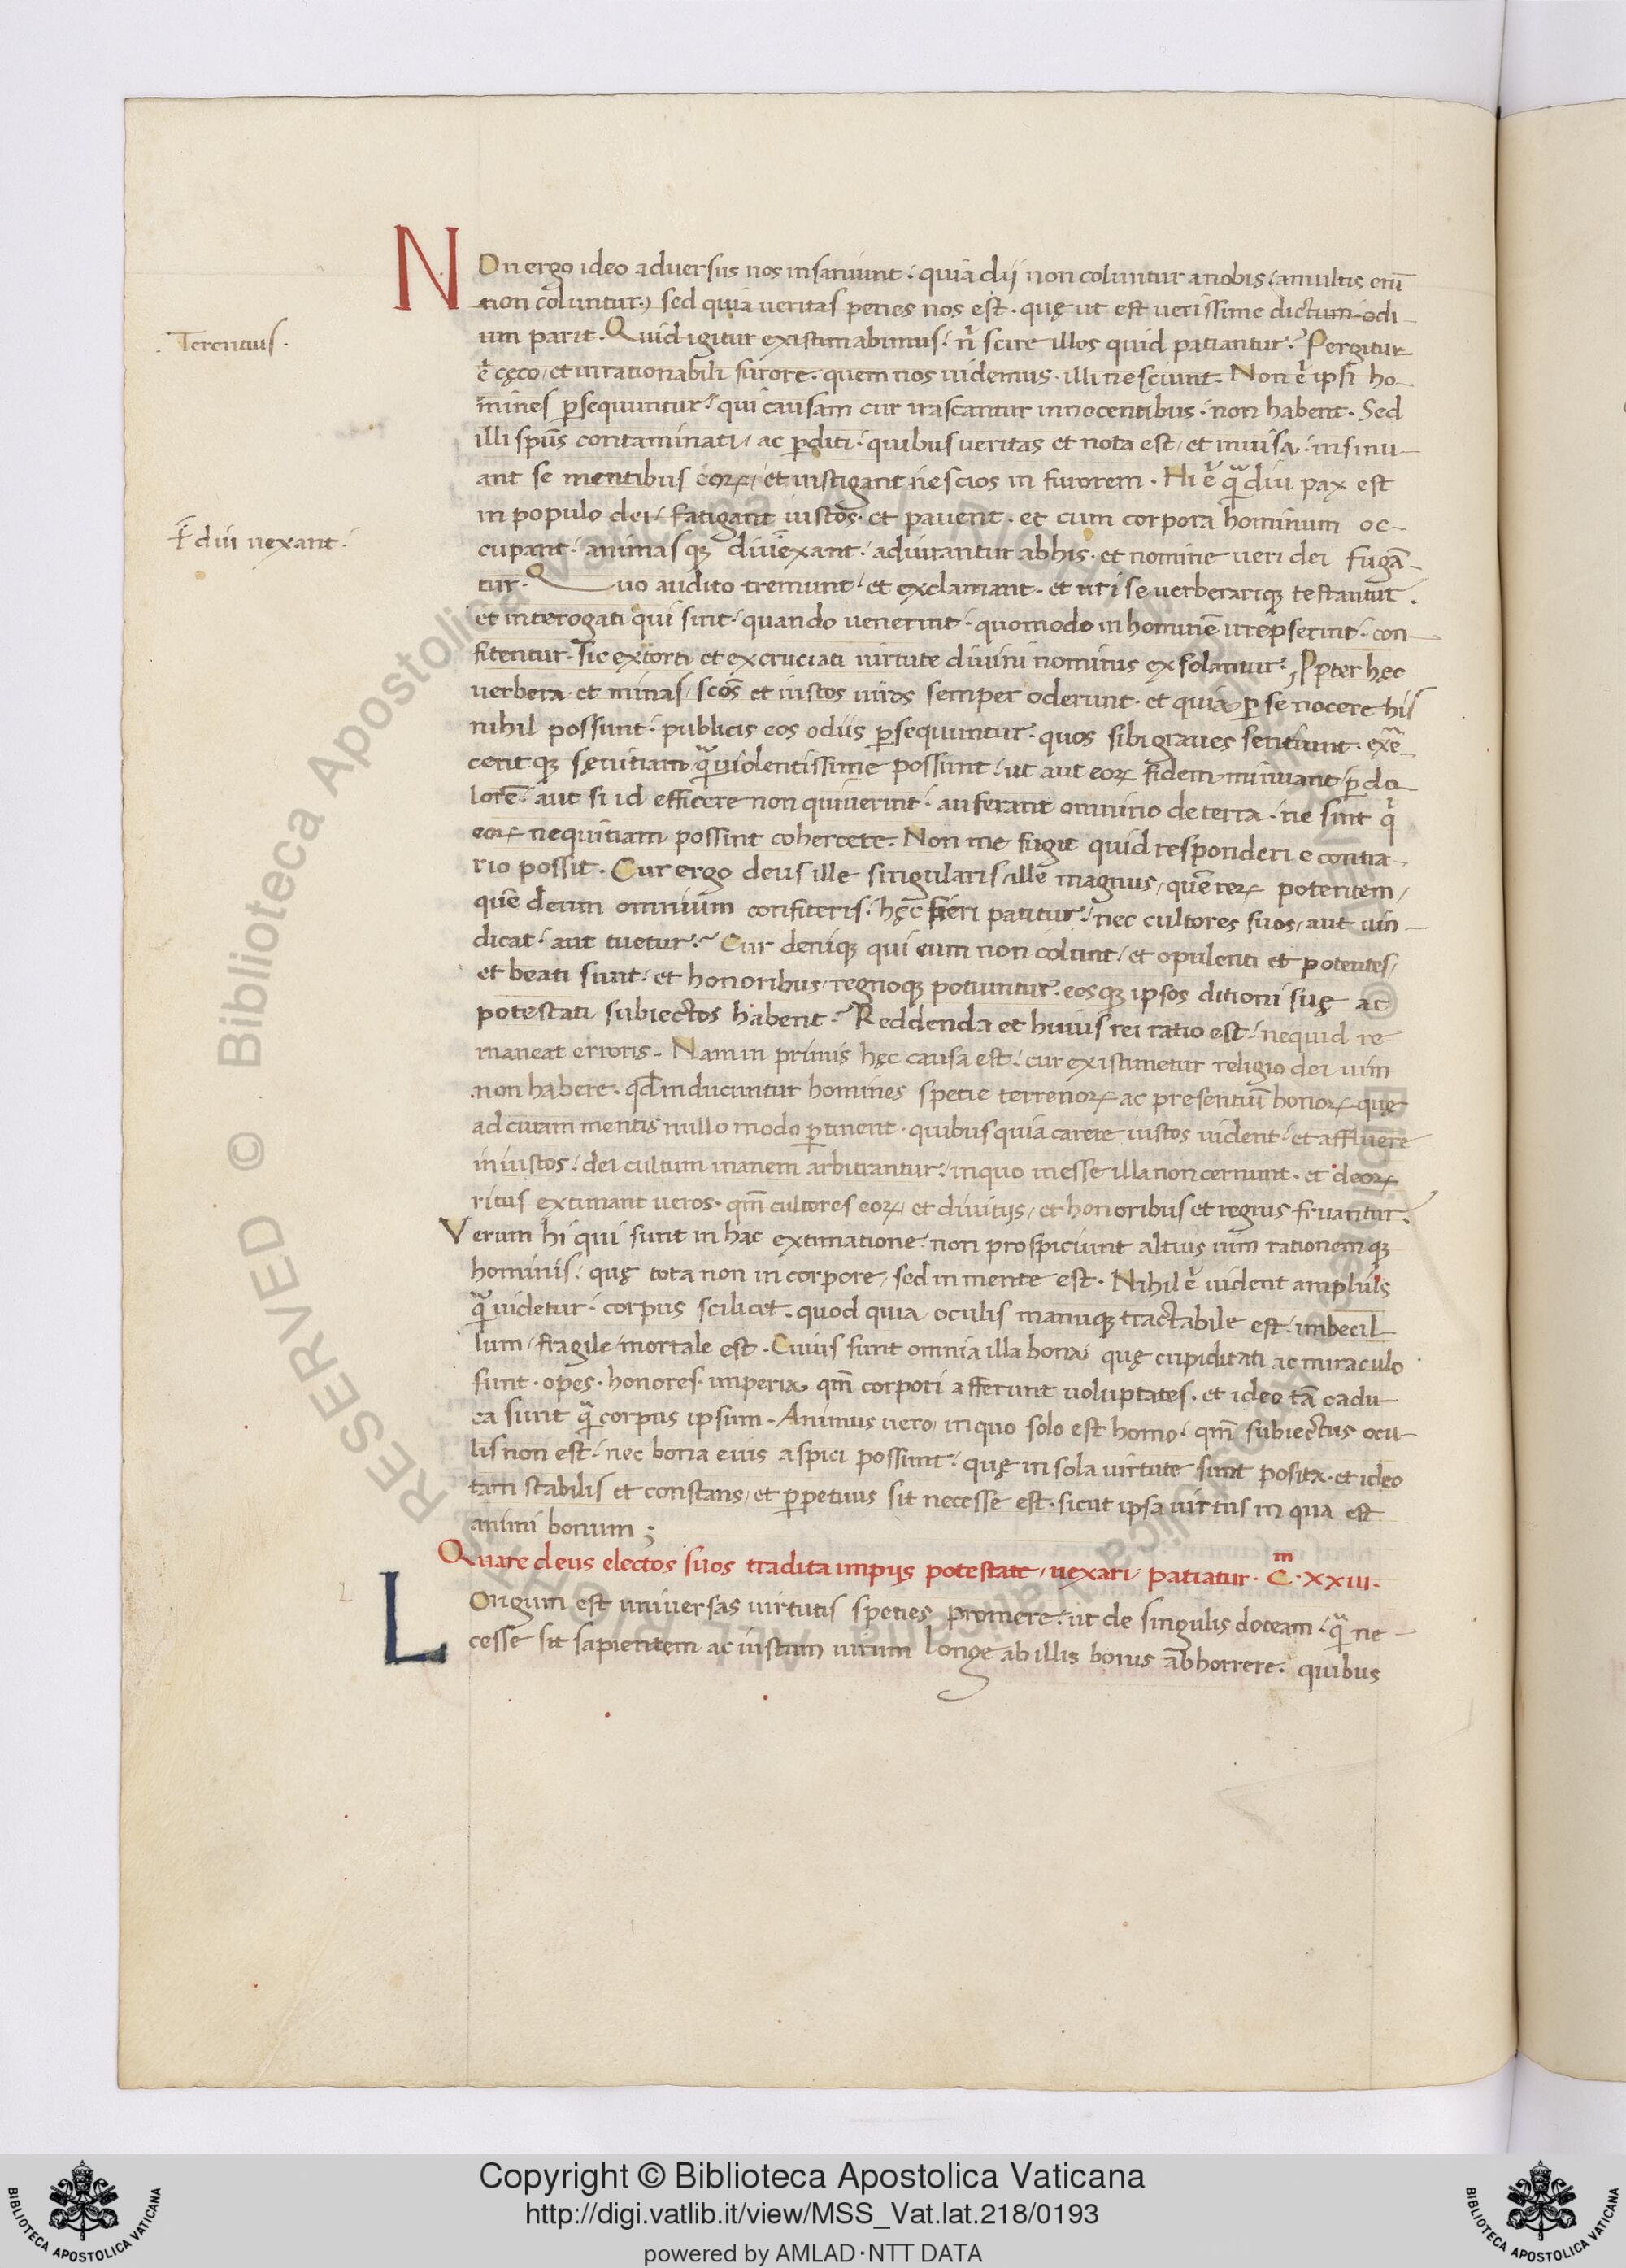 NOn ergo ideo adversus nos insaniunt: quia dii non coluntur a nobis (a multis enī
non coluntur) sed quia veritas penes nos est. quę ut est verissime dictum odi-
um parit. Quid igitur existimabimus: nͥ scire illos quid patiantur? Pergitur
Terentius.
eͥ cęco, et inrationabili furore. quem nos videmus. illi nesciunt. Non eͥ ipsi ho-
mines ꝑsequuntur: qui causam cur irascantur innocentibus. non habent. Sed
illi spūs contaminati, ac ꝑditi: quibus veritas et nota est, et invisa. insinu-
ant se mentibus eoꝝ, et instigant nescios in furorem. Hi eͥ qᷓdiu pax est
in populo dei, fatigant iustos. et pavent. et cum corpora hominum oc-
cupant: animasqꝫ divexant: adiurantur ab his. et nomine veri dei fugā-
divi vexant:
tur. Quo audito tremunt: et exclamant. et uri se verberariqꝫ testantur.
et interogati qui sint: quando venerint: quomodo in hominē irrepserint: con-
fitentur. Sic extorti et excruciati virtute divini nominis exsolantur. Ꝓpter hęc
verbera. et minas, scōs et iustos viros semper oderunt. et quia ꝑ se nocere his
nihil possunt: publicis eos odiis ꝑsequuntur. quos sibi graves sentiunt. exᷓe-
centqꝫ sęvitiam qᷓ violentissime possunt: ut aut eoꝝ fidem minuant ꝑ do-
lorē: aut si id efficere non quiverint: auferant omnino de terra. ne sint qͥ
eoꝝ nequitiam possint cohercere. Non me fugit quid responderi e contra-
rio possit. Cur ergo deus ille singularis, ille magnus, quē reꝝ potentem,
quē deum omnium confiteris: hęc fieri patitur: nec cultores suos, aut vin-
dicat: aut tuetur? Cur deniqꝫ qui eum non colunt, et opulenti et potentes,
et beati sunt: et honoribus, regnoqꝫ potiuntur. eosqꝫ ipsos ditioni suę ac
potestati subiectos habent? Reddenda et huius rei ratio est: nequid re
maneat erroris. Nam in primis hęc causa est: cur existimetur religio dei vim
non habere. qđ inducuntur homines spetie terrenoꝝ ac presentiū bonoꝝ quę
ad curam mentis nullo modo ꝑtinent. quibus quia carere iustos vident: et affluere
iniustos: dei cultum inanem arbitrantur: in quo inesse illa non cernunt. et deoꝝ
ritus extimant veros. qm̄ cultores eoꝝ, et divitiis, et honoribus et regnis fruantur.
Verum hi qui sunt in hac extimatione: non prospiciunt altius vim rationemqꝫ
hominis: quę tota non in corpore, sed in mente est. Nihil eͥ vident amplius
qᷓ videtur: corpus scilicet. quod quia oculis manuqꝫ tractabile est: imbecil-
lum, fragile, mortale est. Cuius sunt omnia illa bona quę cupiditati ac miraculo
sunt. opes. honores. imperia. qm̄ corpori afferunt voluptates. et ideo tā cadu-
ca sunt qᷓ corpus ipsum. Animus vero, in quo solo est homo: qm̄ subiectus ocu-
lis non est: nec bona eius aspici possunt: quę in sola virtute sunt posita. et ideo
tam stabilis et constans, et ꝑpetuus sit necesse est. sicut ipsa virtus in qua est
animi bonum;
Quare deus electos suos tradita impiis potestate, vexari patiatur. Cͫ. xxiii.
LOngum est universas virtutis speties promere: ut de singulis doceam: qᷓ ne-
cesse sit sapientem ac iustum virum longe ab illis bonis abhorrere. quibus
© Biblioteca Apostolica Vaticana ALL RIGHTS RESERVED
Copyright © Biblioteca Apostolica Vaticana
http://digi.vatlib.it/view/MSS_Vat.lat.218/0193
powered by AMLAD·NTT DATA
BIBLIOTECA APOSTOLICA VATICANA
BIBLIOTECA APOSTOLICA VATICANA